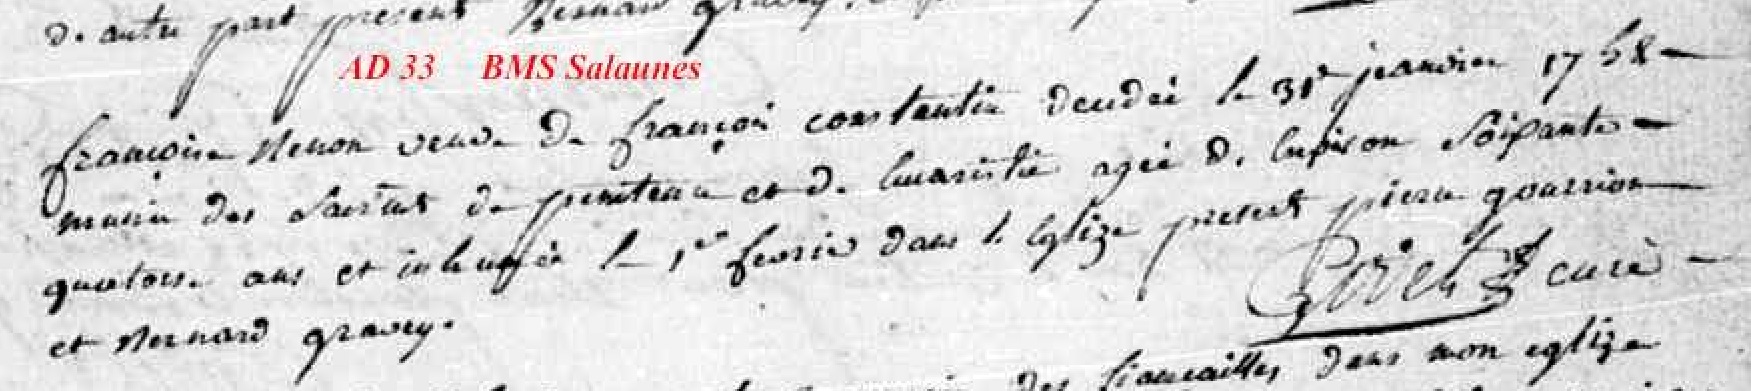 d. autre part present Bernard gravey.
AD 33 BMS Salaunes
françoise Menon veuve de françois constantin deudée le 31e jeanvier 1758
munie des Sacrts de penitence et d. leucaristie agée d. environ Soixante
quatorse ans et inhumée le 1er fevrie dans l. Eglize present piere gourrion
et Bernard gravey. curé
des fiancailles dans mon eglize